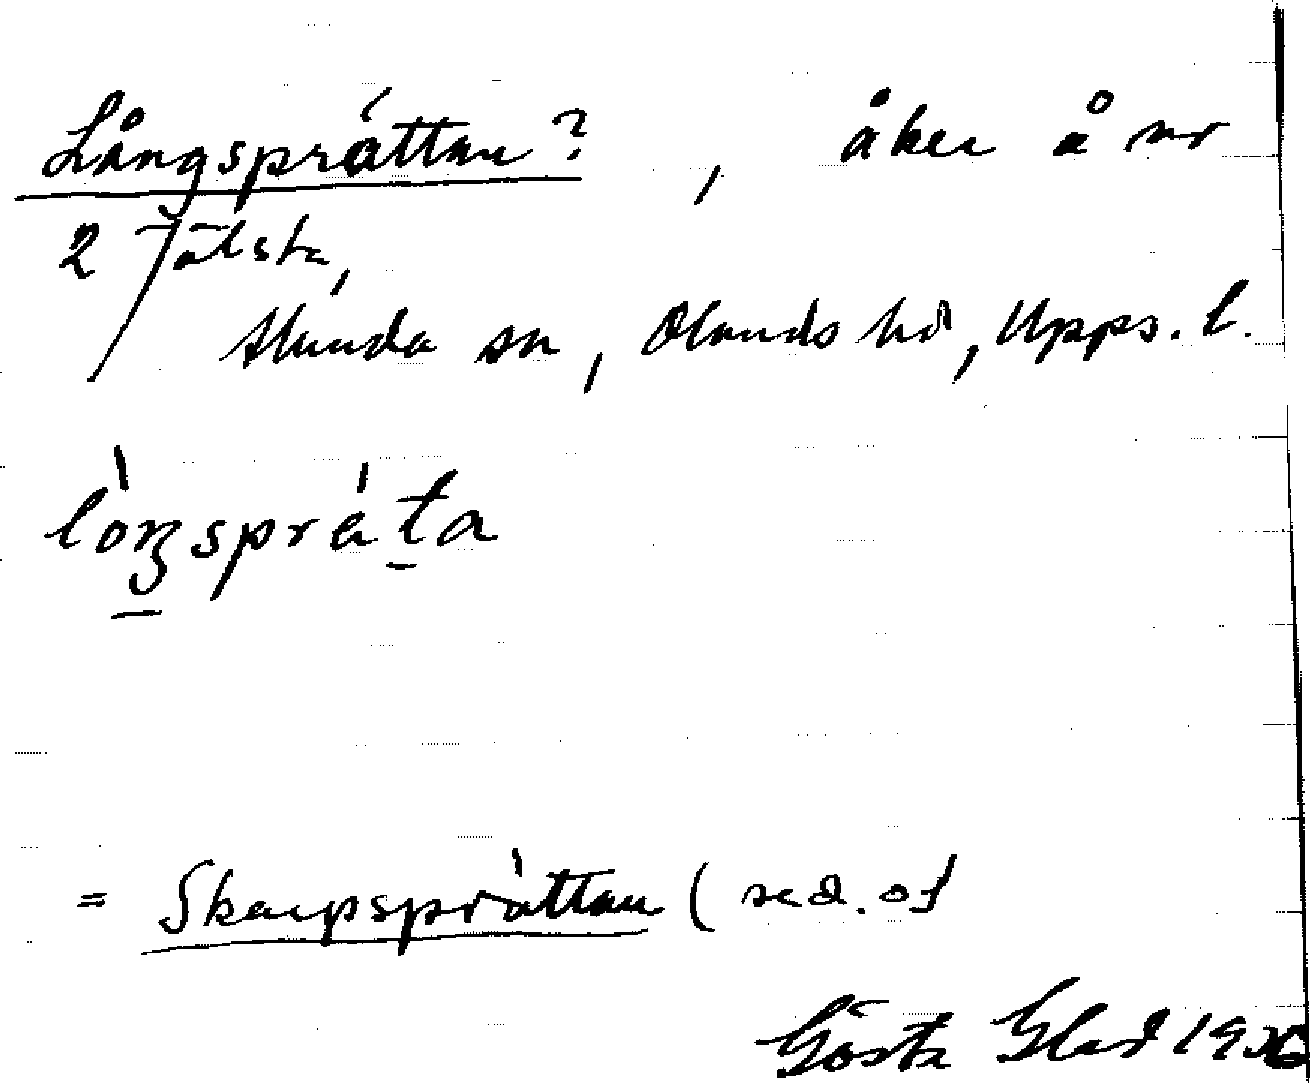 Långsprättan? , åker å nr
2 Jälsta,
Alunda sn, Olands hd, Upps. l.
lòŋspráta
= Skarpsprättan (red. of
Gösta Glad 1936